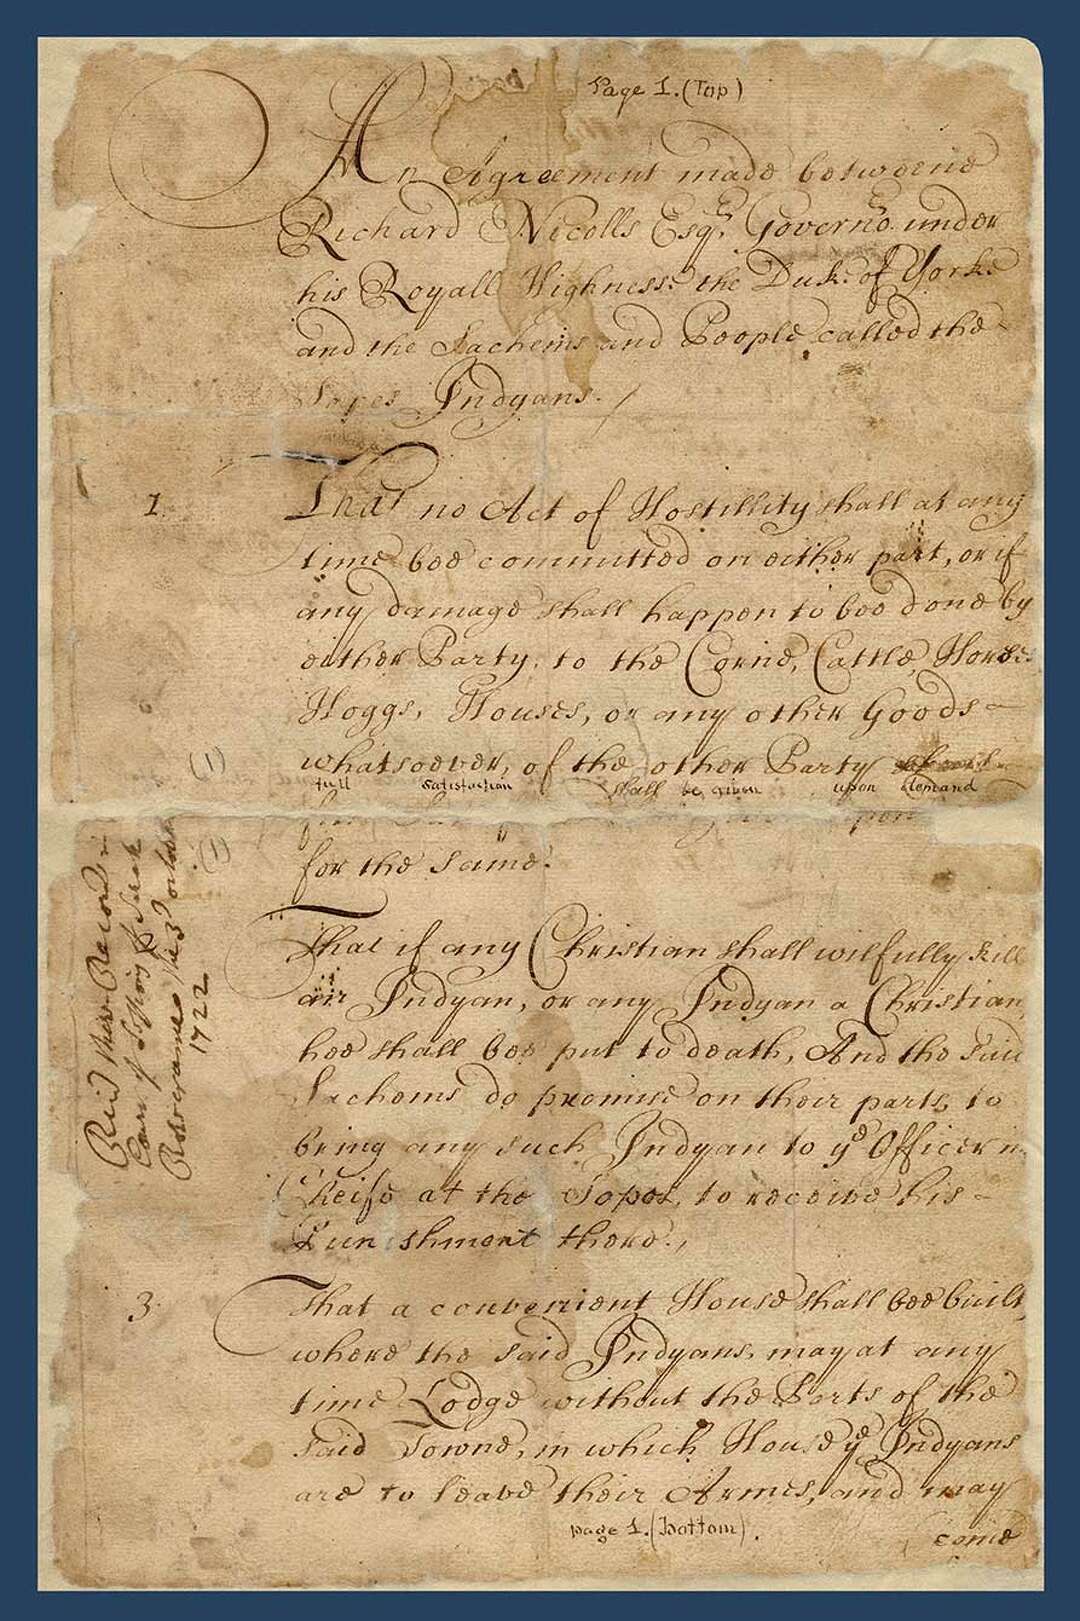 Page 1. (Top)
An Agreement made betweene
Richard Nicolls Esqr. Governor. under
his Royall Highnesse the Duke of Yorke
and the Sachems and People called the
Sopes Indyans.
1. That no Act of Hostillity shall at any
time bee committed on either part, or if
any damage shall happen to bee done by
either Party, to the Corne, Cattle, Horses
Hoggs, Houses, or any other Goods
whatsoever, of the other Party
full satisfaction shall be given upon demand
(1)
upon
(1)
for the same.
That if any Christian shall wilfully kill
an Indyan, or any Indyan a Christian
hee shall bee put to death, And the said
Sachems do promise on their parts, to
bring any such Indyan to ye Officer in
Cheife at the Sopes, to receive his
Punishment there.
3. That a convenient House shall bee built
where the said Indyans, may at any
time Lodge without the Ports of the
said Towne, in which House ye Indyans
are to leave their Armes, and may
page 1. (bottom).
come
1722